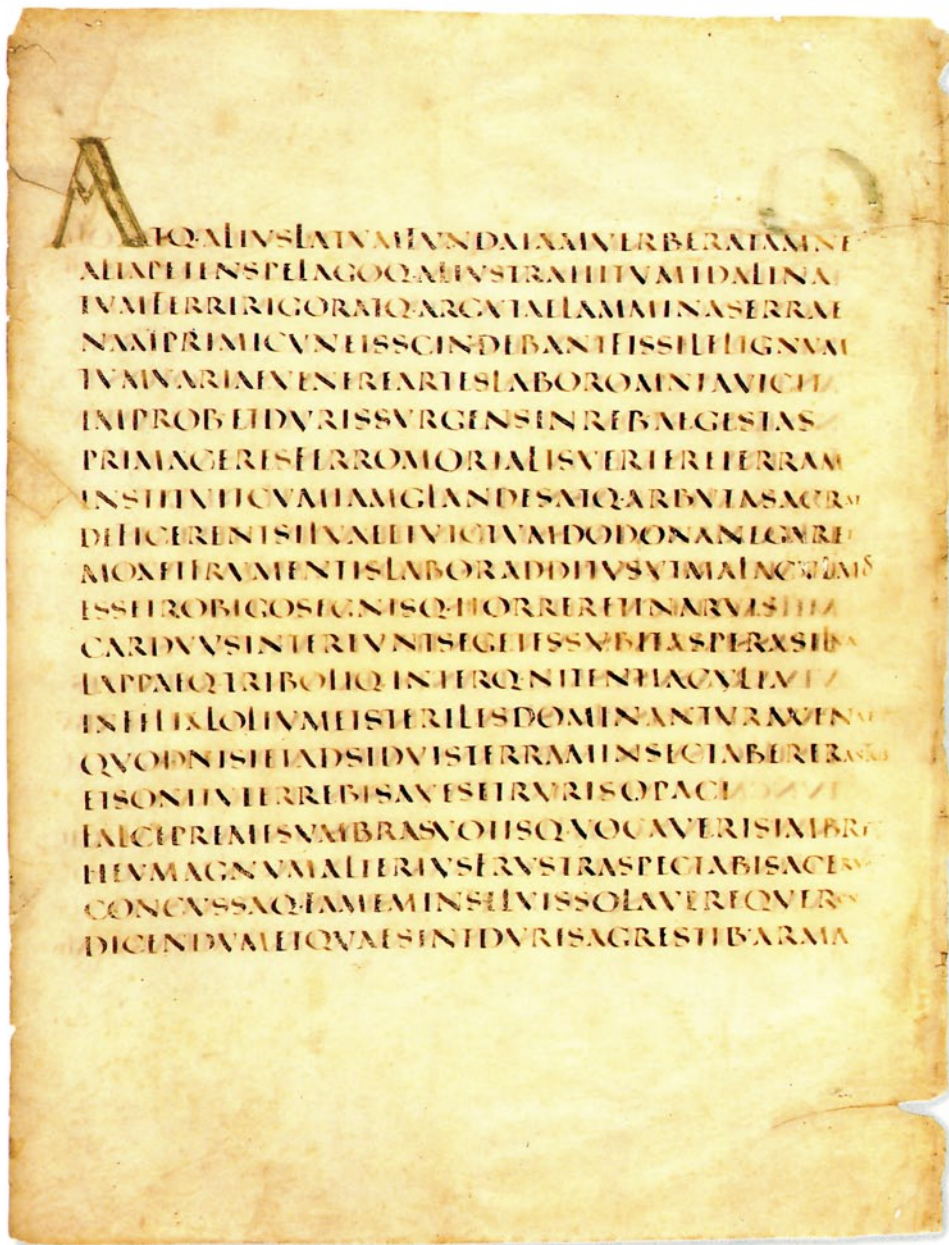 ATQ·ALIVSLATVMFVNDAIAMVERBERATAMNE
ALTAPETENSPELAGOQ·ALIVSTRAHITVMIDALINA
TVMFERRIRIGORATQ·ARGVTAELAMMINASERRAE
NAMPRIMICVNEISSCINDEBANTFISSILELIGNVM
TVMVARIAEVENEREARTESLABOROMNIAVICIT
IMPROBETDVRISSVRGENSINREB·AEGESTAS
PRIMACERESFERROMORTALISVERTERETERRAM
INSTITVITCVMIAMGLANDESATQ·ARBVTASACRAE
DEFICERENTSILVAEETVICTVMDODONANEGARET
MOXETFRVMENTISLABORADDITVSVTMALACVLMOS
ESSETROBIGOSEGNISQ·HORRERETINARVIS
CARDVVSINTEREVNTSEGETESSVBITASPERASILVA
LAPPAEQ·TRIBOLIQ·INTERQ·NITENTIACVLTA
INFELIXLOLIVMETSTERILESDOMINANTVRAVENAE
QVODNISIETADSIDVISTERRAMINSECTABERERAS
ETSONITVTERREBISAVESETRVRISOPACI
FALCEPREMESVMBRASVOTISQ·VOCAVERISIMBRE
HEVMAGNVMALTERIVSFRVSTRASPECTABISACER
CONCVSSAQ·FAMEMINSILVISSOLAVEREQVER
DICENDVMETQVAESINTDVRISAGRESTIB·ARMA